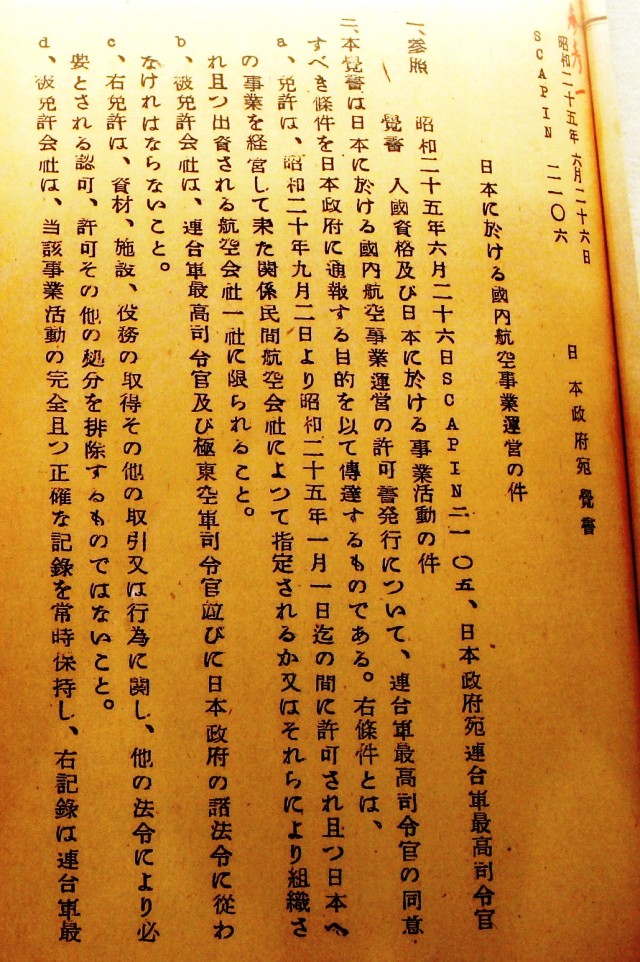 参考一
昭和二十五年六月二十六日
SCAPIN 二一〇六
日本政府宛覺書
日本に於ける國内航空事業運営の件
一、参照 昭和二十五年六月二十六日SCAPIN二一〇五、日本政府宛連台軍最高司令官
覺書 入國資格及び日本に於ける事業活動の件
二、本覺書は日本に於ける國内航空事業運営の許可書発行について、連台軍最高司令官の同意
すべき條件を日本政府に通報する目的を以て傳達するものである。右條件とは、
a、免許は、昭和二十年九月二日より昭和二十五年一月一日迄の間に許可され且つ日本へ
の事業を経営して来た関係民間航空会社によつて指定されるか又はそれらにより組織さ
れ且つ出資される航空会社一社に限られること。
b、被免許会社は、連台軍最高司令官及び極東空軍司令官並びに日本政府の諸法令に從わ
なければならないこと。
c、右免許は、資材、施設、役務の取得その他の取引又は行為に関し、他の法令により必
要とされる認可、許可その他の処分を排除するものではないこと。
d、被免許会社は、当該事業活動の完全且つ正確な記録を常時保持し、右記録は連台軍最